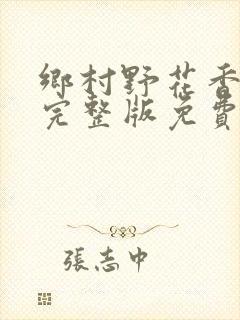 鄉村野花香
完整版免費
張志中